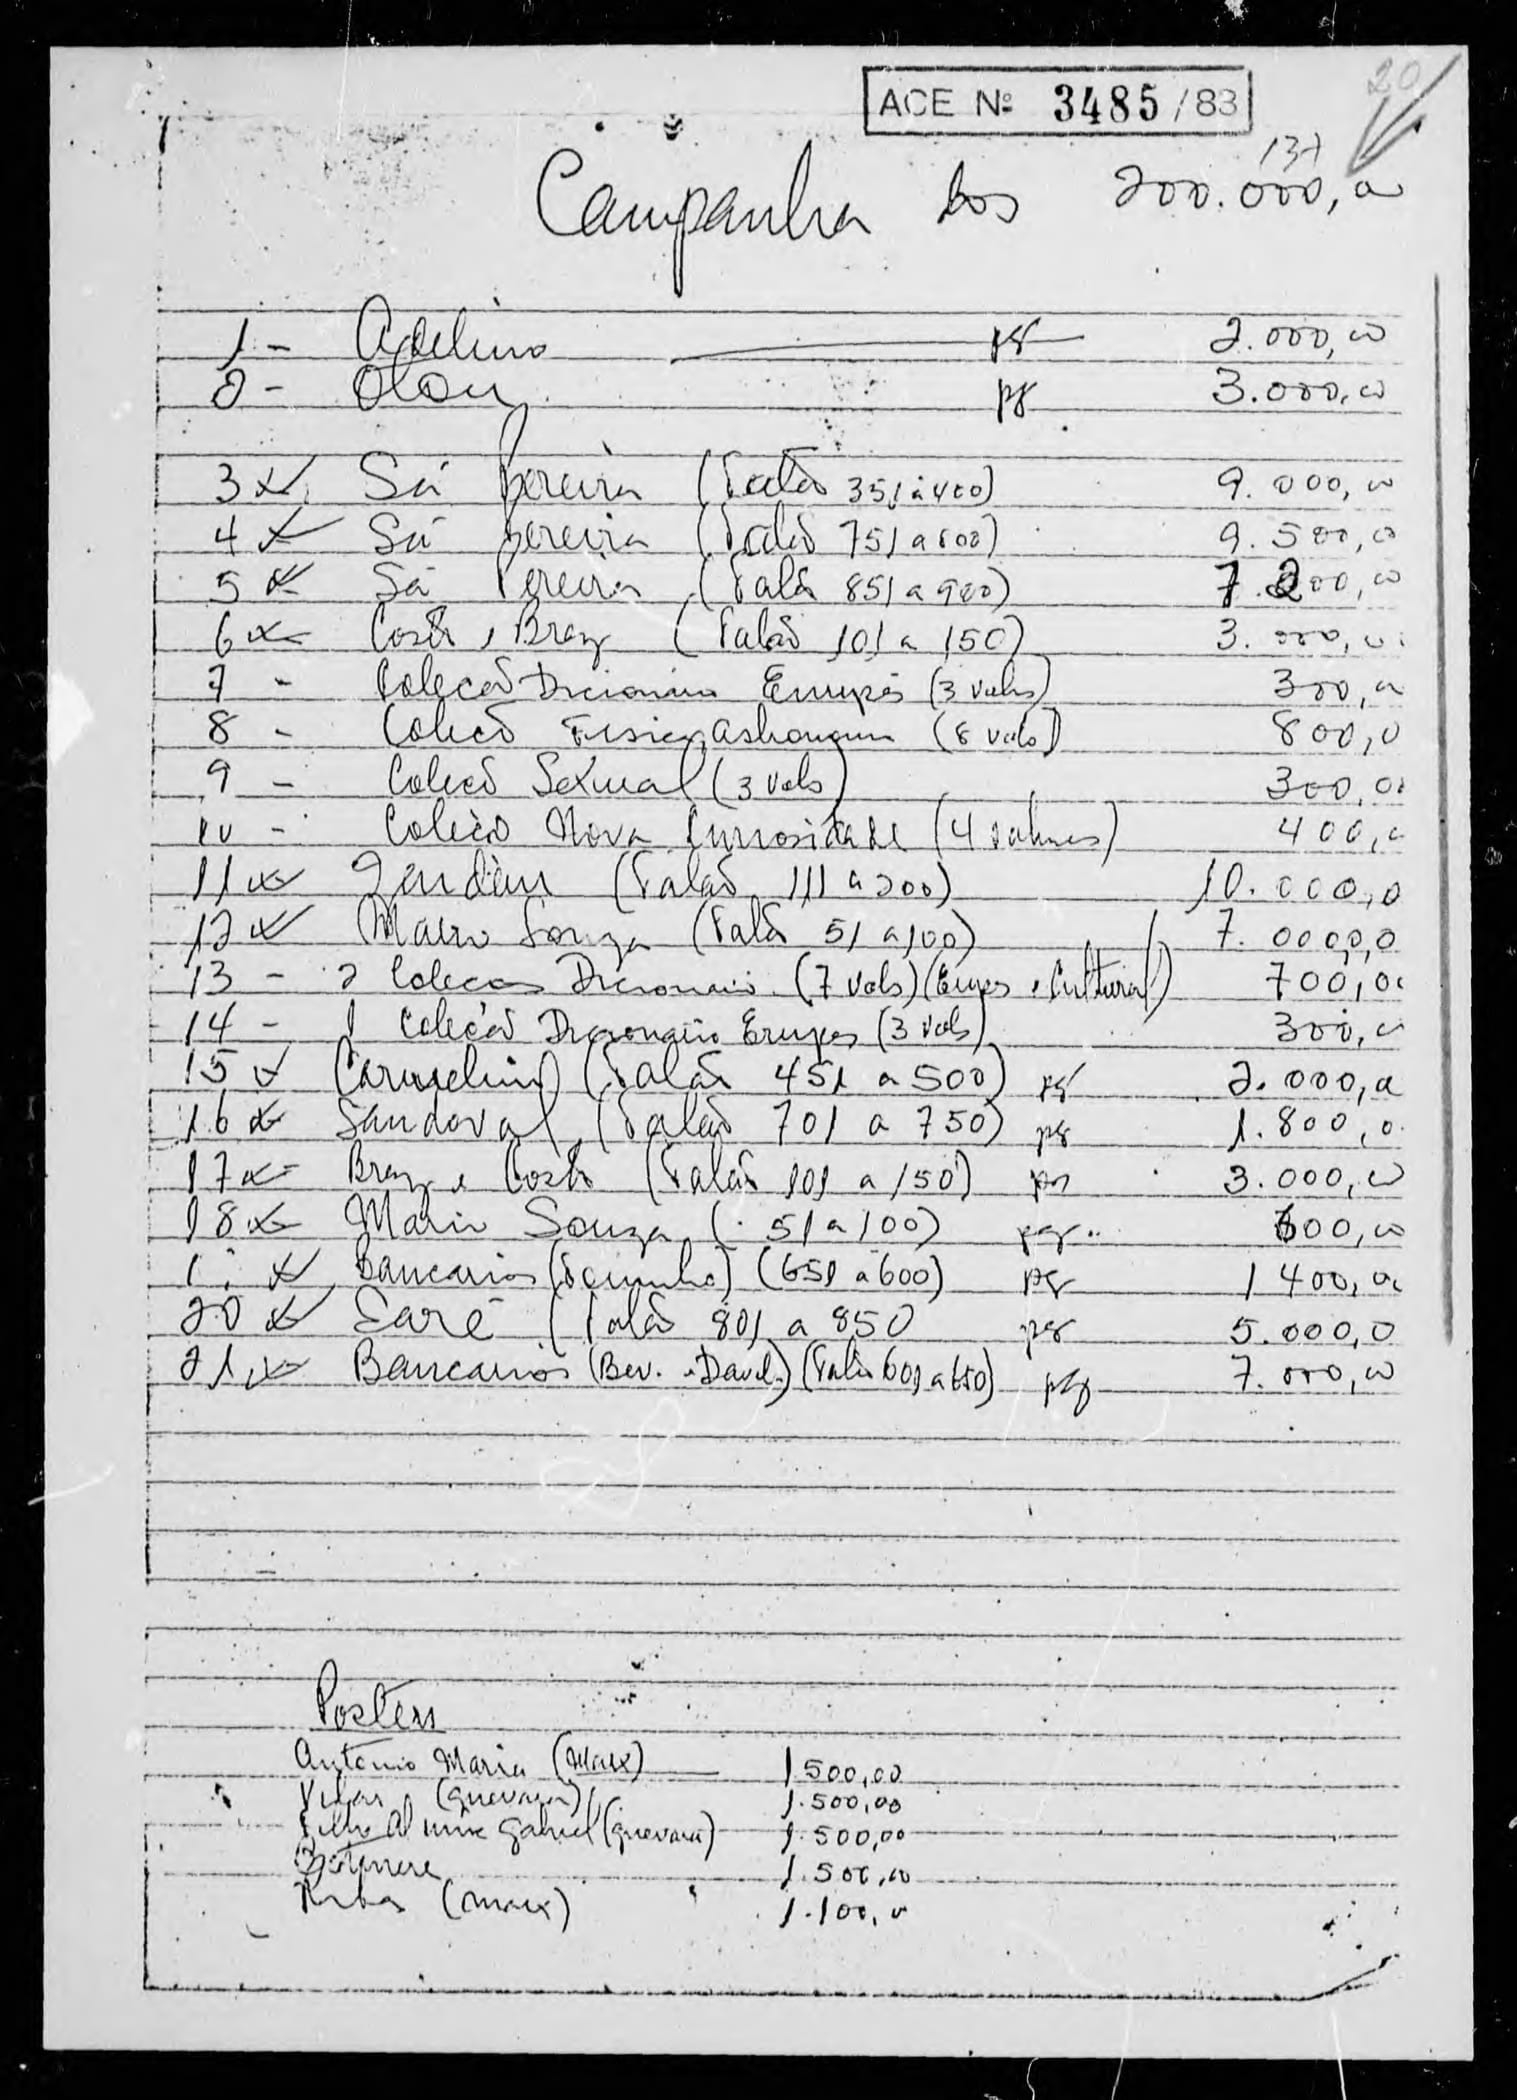 20
ACE Nº 3485/83
137
Campanha dos 200.000,00
1 - Adelino pg 2.000,00
2 - Olou pg 3.000,00
3 x Sá Pereira (Talão 351 a 400) 9.000,00
4 x Sá Pereira (Talão 751 a 800) 9.500,00
5 x Sá Pereira (Talão 851 a 900) 7.200,00
6 x Costa e Braz (Talão 101 a 150) 3.000,00
7 - Coleção Dicionário (3 vols) 300,00
8 - Coleção Fisica, Astronomia (8 vols) 800,0
9 - Coleção Sexual (3 vols) 300,00
10 - Coleção Nova Curiosidade (4 volumes) 400,0
11 x (Talão 111 a 200) 10.000,0
12 x Mauro Souza (Talão 51 a 100) 7.000,0
13 - 2 Coleções Dicionário (7 vols) ( e Cultural) 700,00
14 - 1 Coleção Dicionário (3 vols) 300,00
15 x Carmelino (Talão 451 a 500) pg 2.000,00
16 x Sandoval (Talão 701 a 750) pg 1.800,0
17 x Braz e Costa (Talão 101 a 150) pg 3.000,00
18 x Mario Souza (51 a 100) pg 600,00
1 x Bancarios (651 a 600) pg 1400,00
20 x Saré (Talão 801 a 850 pg 5.000,0
21 x Bancarios (Bev. e David.) (Talão 601 a 650) pg 7.000,00
Posters
Antonio Maria (Marx) 1.500,00
(Guevara) 1.500,00
Gabriel (Guevara) 1.500,00
1.500,00
(Marx) 1.100,0